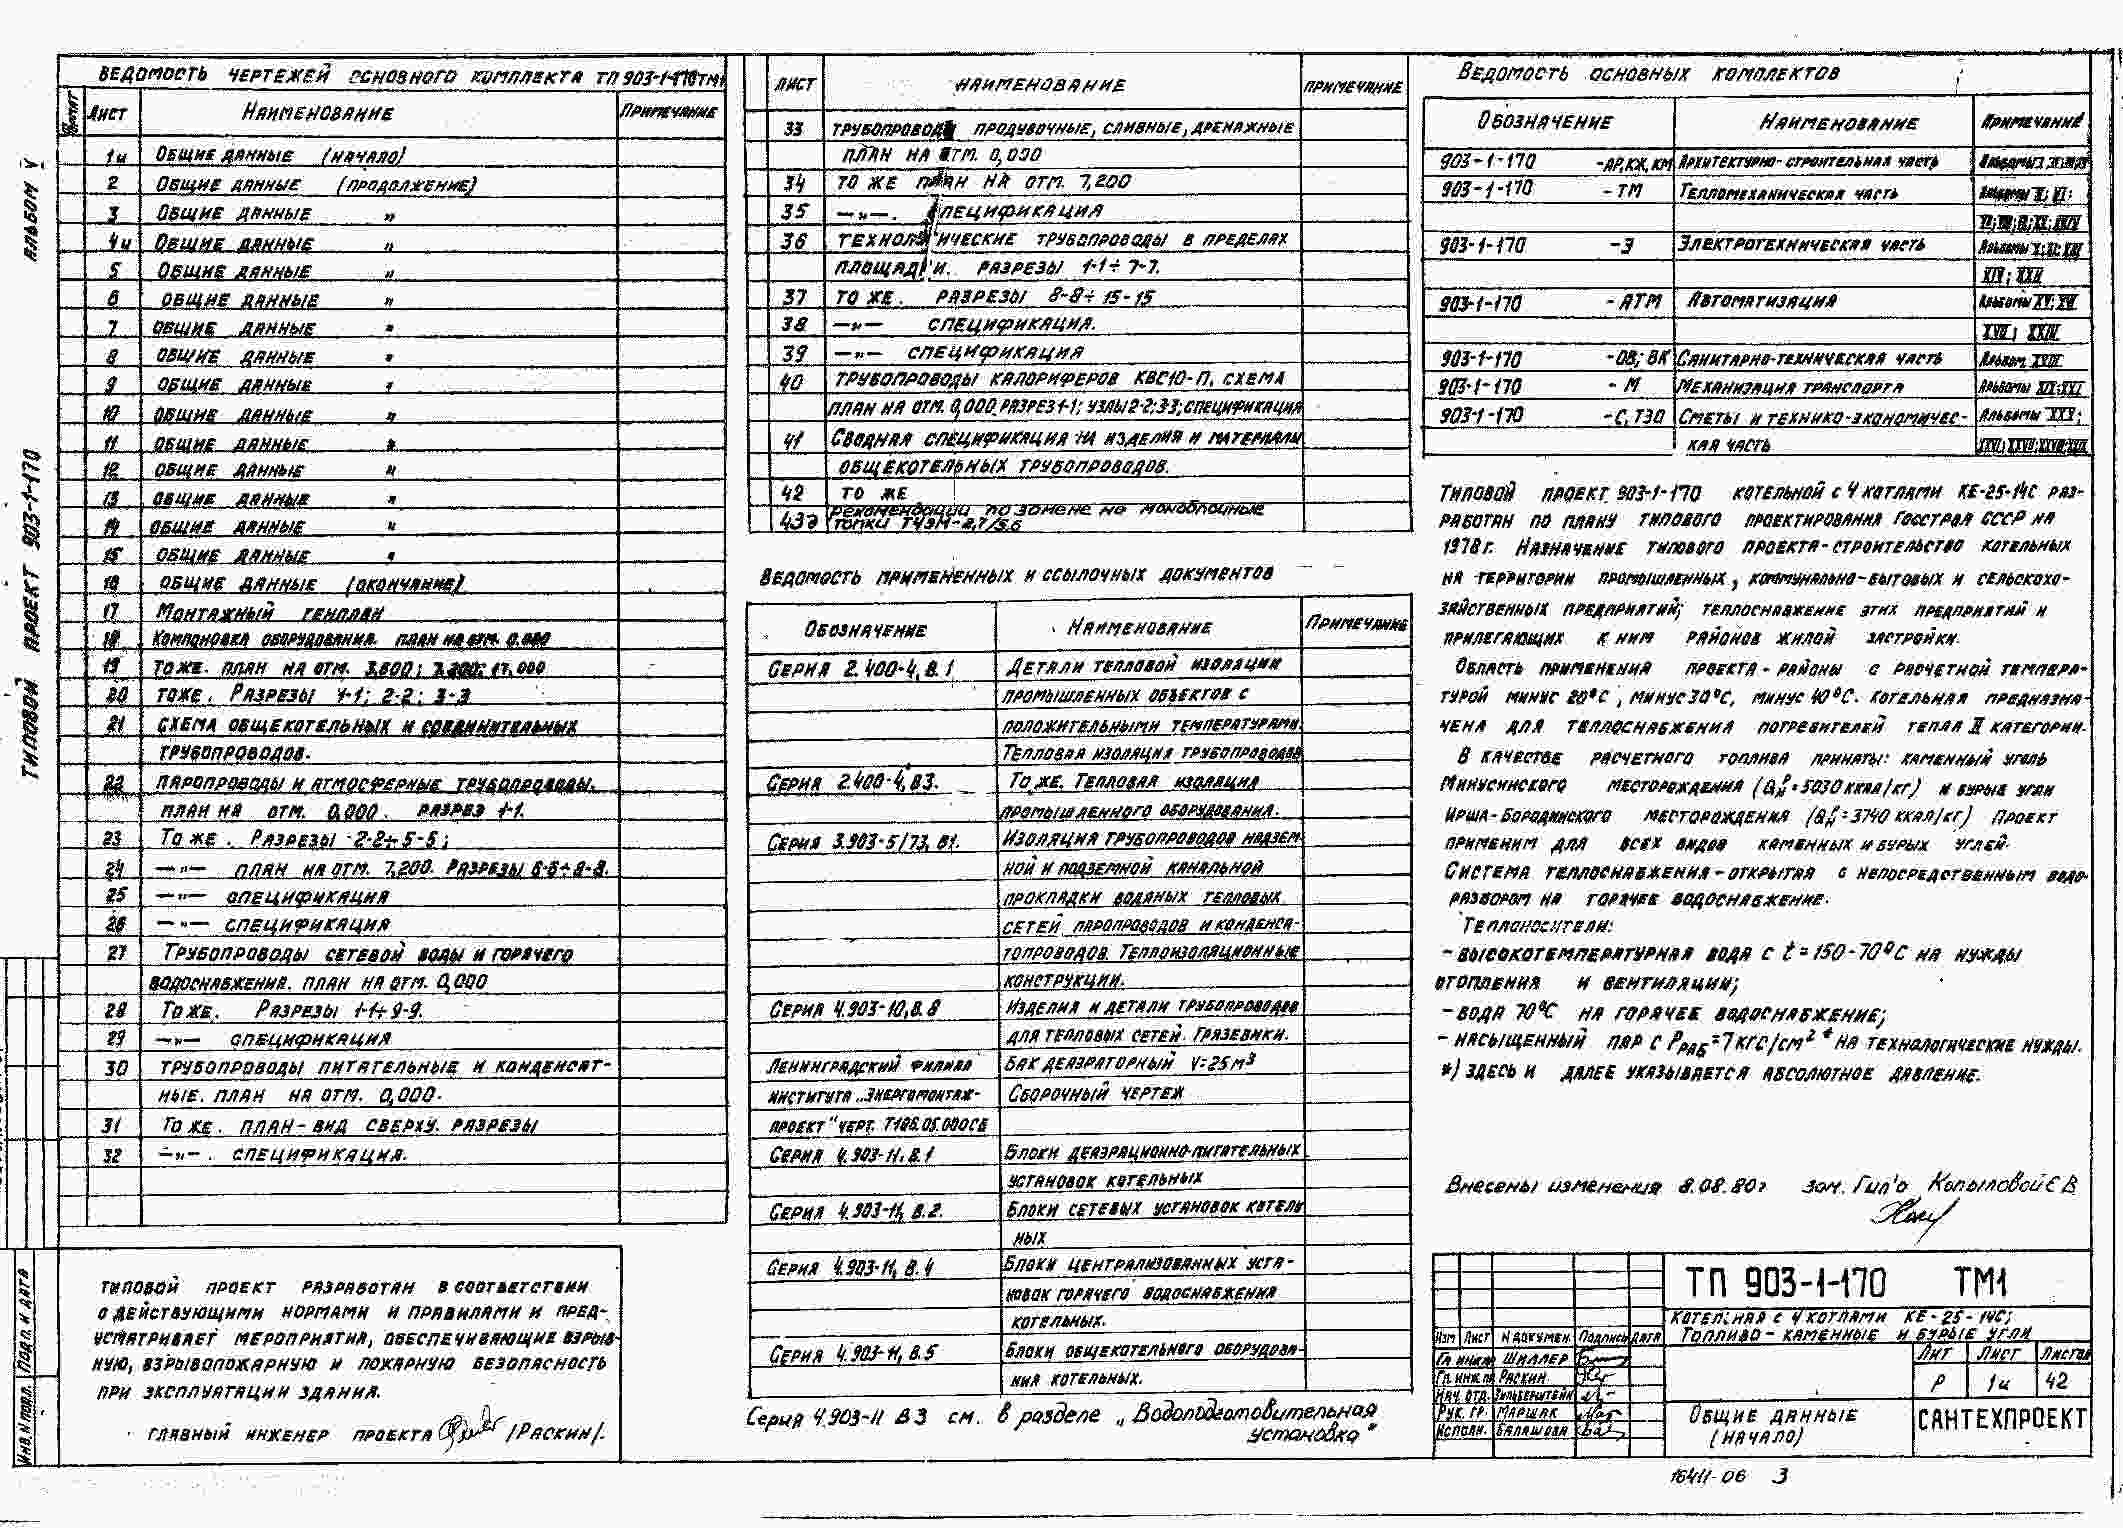 ВЕДОМОСТЬ ЧЕРТЕЖЕЙ ОСНОВНОГО КОМПЛЕКТА ТП 903-1-170 ТМ1
Лист Наименование Примечание
1и Общие данные (начало)
2 Общие данные (продолжение)
3 Общие данные „
4и Общие данные „
5 Общие данные „
6 Общие данные „
7 Общие данные „
8 Общие данные „
9 Общие данные „
10 Общие данные „
11 Общие данные „
12 Общие данные „
13 Общие данные „
14 Общие данные „
15 Общие данные „
16 Общие данные (окончание)
17 Монтажный генплан
18 Компоновка оборудования. план на отм. 0.000
19 То же. план на отм. 3.600; 7.200; 17,000
20 То же. Разрезы 1-1; 2-2; 3-3
21 Схема общекотельных и соединительных
трубопроводов.
22 Паропроводы и атмосферные трубопроводы.
план на отм. 0,000. разрез 1-1.
23 То же. Разрезы 2-2÷5-5;
24 —„— план на отм. 7,200. Разрезы 6-6÷8-8.
25 —„— спецификация
26 —„— спецификация
27 Трубопроводы сетевой воды и горячего
водоснабжения. план на отм. 0,000
28 То же. Разрезы 1-1÷9-9.
29 —„— спецификация
30 Трубопроводы питательные и конденсат-
ные. план на отм. 0,000.
31 То же. план-вид сверху. разрезы
32 —„—. спецификация.
Типовой проект разработан в соответствии
с действующими нормами и правилами и пред-
усматривает мероприятия, обеспечивающие взрыв-
ную, взрывопожарную и пожарную безопасность
при эксплуатации здания.
Главный инженер проекта /Раскин/.
лист Наименование Примечание
33 Трубопроводы продувочные, сливные, дренажные
план на отм. 0,000
34 То же план на отм. 7,200
35 —„—. спецификация
36 Технологические трубопроводы в пределах
площадки. разрезы 1-1÷7-7.
37 То же. разрезы 8-8÷15-15
38 —„— спецификация.
39 —„— спецификация
40 Трубопроводы калориферов КВС10-П. схема
план на отм. 0,000 разрез 1-1; узлы 2-2; 3-3; спецификация
41 Сводная спецификация на изделия и материалы
общекотельных трубопроводов.
42 То же
43д Рекомендации по замене на моноблочные
топки ТЧЗМ-2,7/5.6
Ведомость примененных и ссылочных документов
Обозначение Наименование Примечание
Серия 2.400-4, В.1 Детали тепловой изоляции
промышленных объектов с
положительными температурами.
Тепловая изоляция трубопроводов
Серия 2.400-4, В3. То же. Тепловая изоляция
промышленного оборудования.
Серия 3.903-5/73, В1. Изоляция трубопроводов надзем-
ной и подземной канальной
прокладки водяных тепловых
сетей паропроводов и конденса-
топроводов. Теплоизоляционные
конструкции.
Серия 4.903-10, В.8 Изделия и детали трубопроводов
для тепловых сетей. Грязевики.
Ленинградский филиал Бак деаэраторный V=25м³
института „Энергомонтаж- Сборочный чертеж
проект" черт. Т186.05.000СБ
Серия 4.903-11, В.1 Блоки деаэрационно-питательных
установок котельных
Серия 4.903-11, В.2. Блоки сетевых установок котель
ных
Серия 4.903-11, В.4 Блоки централизованных уста-
новок горячего водоснабжения
котельных.
Серия 4.903-11, В.5 Блоки общекотельного оборудова-
ния котельных.
Серия 4.903-11 В3 см. в разделе „Водоподготовительная
установка"
Ведомость основных комплектов
Обозначение Наименование Примечание
903-1-170 -АР,КЖ,КМ Архитектурно-строительная часть
903-1-170 -ТМ Тепломеханическая часть Альбомы V; VI;
903-1-170 -Э Электротехническая часть
XIV; XXII
903-1-170 -АТМ Автоматизация Альбомы XV; XVI
XVII; XXIII
903-1-170 -ОВ; ВК Санитарно-техническая часть Альбом XVIII
903-1-170 -М Механизация транспорта Альбомы XIX; XXI
903-1-170 -С, ТЭО Сметы и технико-экономичес- Альбомы XXV;
кая часть
Типовой проект 903-1-170 котельной с 4 котлами КЕ-25-14С раз-
работан по плану типового проектирования Госстроя СССР на
1978г. Назначение типового проекта-строительство котельных
на территории промышленных, коммунально-бытовых и сельскохо-
зяйственных предприятий; теплоснабжение этих предприятий и
прилегающих к ним районов жилой застройки.
Область применения проекта-районы с расчетной темпера-
турой минус 20°С, минус 30°С, минус 40°С. Котельная предназна-
чена для теплоснабжения потребителей тепла II категории.
В качестве расчетного топлива приняты: каменный уголь
Минусинского месторождения (Qнр=5030 ккал/кг) и бурые угли
Ирша-Бородинского месторождения (Qнр=3740 ккал/кг) Проект
применим для всех видов каменных и бурых углей.
Система теплоснабжения-открытая с непосредственным водо-
разбором на горячее водоснабжение.
Теплоносители:
-высокотемпературная вода с t=150-70°С на нужды
отопления и вентиляции;
-вода 70°С на горячее водоснабжение;
-насыщенный пар с Pраб=7кгс/см²* на технологические нужды.
*) Здесь и далее указывается абсолютное давление.
Внесены изменения 8.08.80г зам. Гип'а Копыловой Е В
ТП 903-1-170 ТМ1
Котельная с 4 котлами КЕ-25-14С;
Топливо-каменные и бурые угли
Изм Лист N докумен. Подпись Дата
Гл инж Шиллер
Гл. инж. пр Раскин
Нач. отд. Зильберштейн
Рук. гр. Маршак
Исполн. Балашова
Лит Лист Листов
Р 1и 42
Общие данные
(начало)
САНТЕХПРОЕКТ
16411-06 3
Альбом V
Типовой проект 903-1-170
Подп. и дата
Инв. N подл.